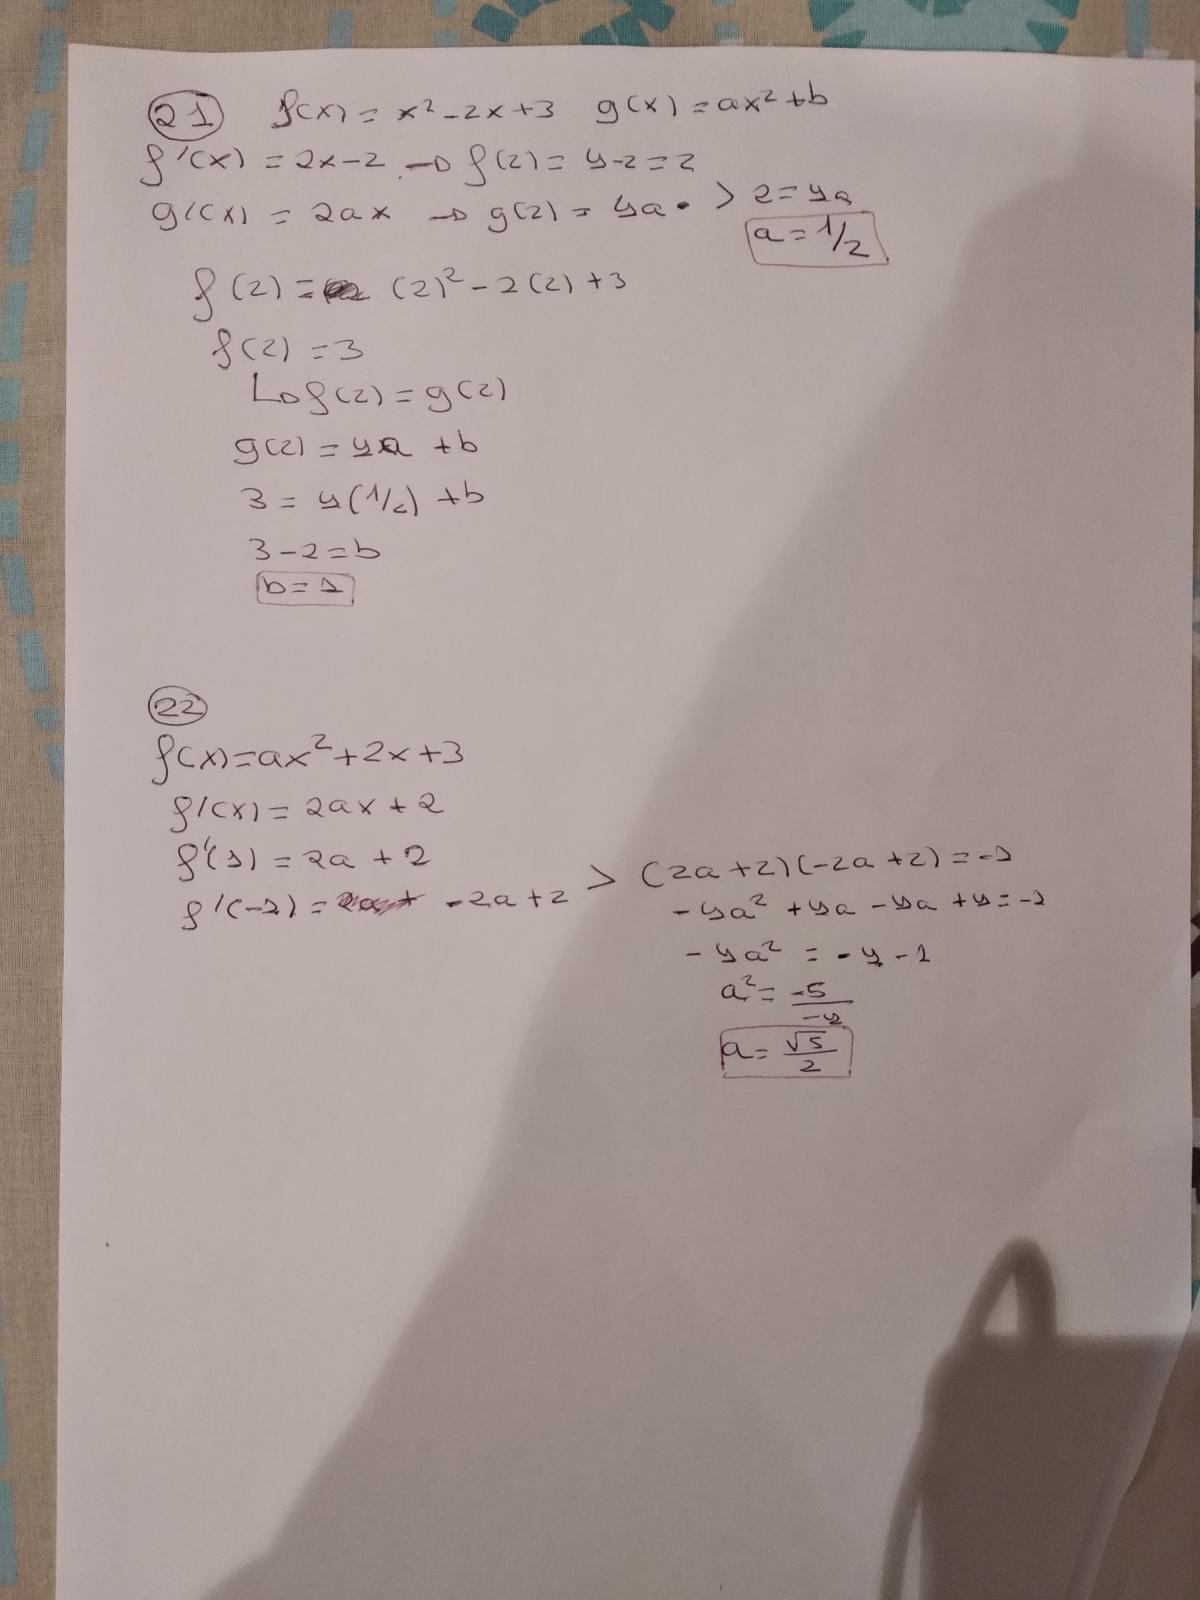 21 f(x) = x² - 2x + 3 g(x) = ax² + b
f'(x) = 2x - 2 → f(2) = 4 - 2 = 2
g'(x) = 2ax → g(2) = 4a > 2 = 4a
a = 1/2
f(2) = (2)² - 2(2) + 3
f(2) = 3
↳ f(2) = g(2)
g(2) = 4a + b
3 = 4(1/2) + b
3 - 2 = b
b = 1
22
f(x) = ax² + 2x + 3
f'(x) = 2ax + 2
f'(1) = 2a + 2
f'(-1) = -2a + 2 > (2a + 2)(-2a + 2) = -1
-4a² + 4a - 4a + 4 = -1
-4a² = -4 - 1
a² = -5/-4
a = √5/2